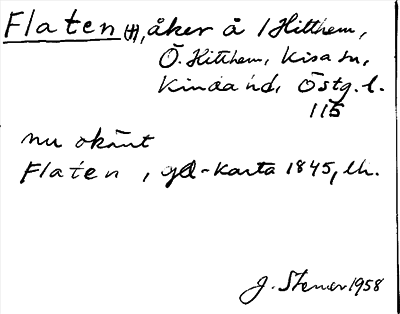 Flaten (H), åker å 1 Hitthem,
Ö. Hitthem, Kisa sn,
Kinda hd, Östg. l.
115
nu okänt
Flaten, gd-karta 1845, lh.
J. Stener 1958